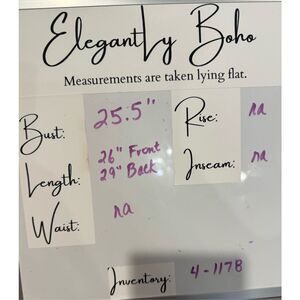 Elegantly Boho
Measurements are taken lying flat.
Bust: 25.5"
Length: 26" Front
29" Back
Waist: na
Rise: na
Inseam: na
Inventory: 4-1178